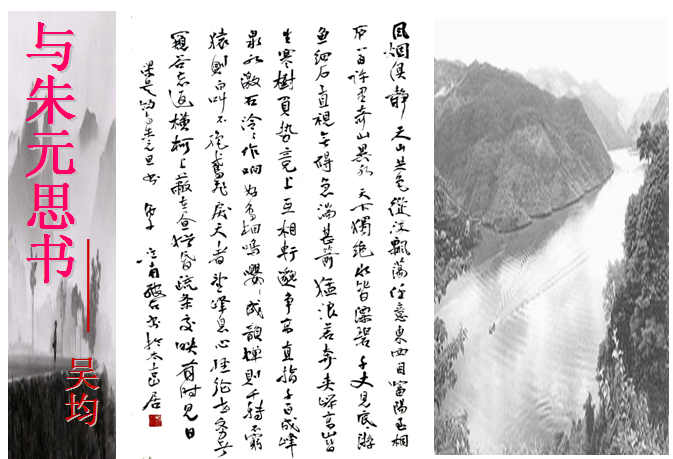 与朱元思书
——吴均
風烟俱静天山共色從江飄蕩任意東西自富陽至桐
廬一百許里奇山異水天下獨絕水皆縹碧千丈見底游
魚細石直視無礙急湍甚箭猛浪若奔夾岸高山皆
生寒樹負勢競上互相軒邈爭高直指千百成峰
泉水激石泠泠作响好鳥相鳴嚶嚶成韻蟬則千轉不窮
猿則百叫不絕鳶飛戾天者望峰息心經綸世務者
窺谷忘返橫柯上蔽在晝猶昏疏條交映有時見日
梁吳均與朱元思書